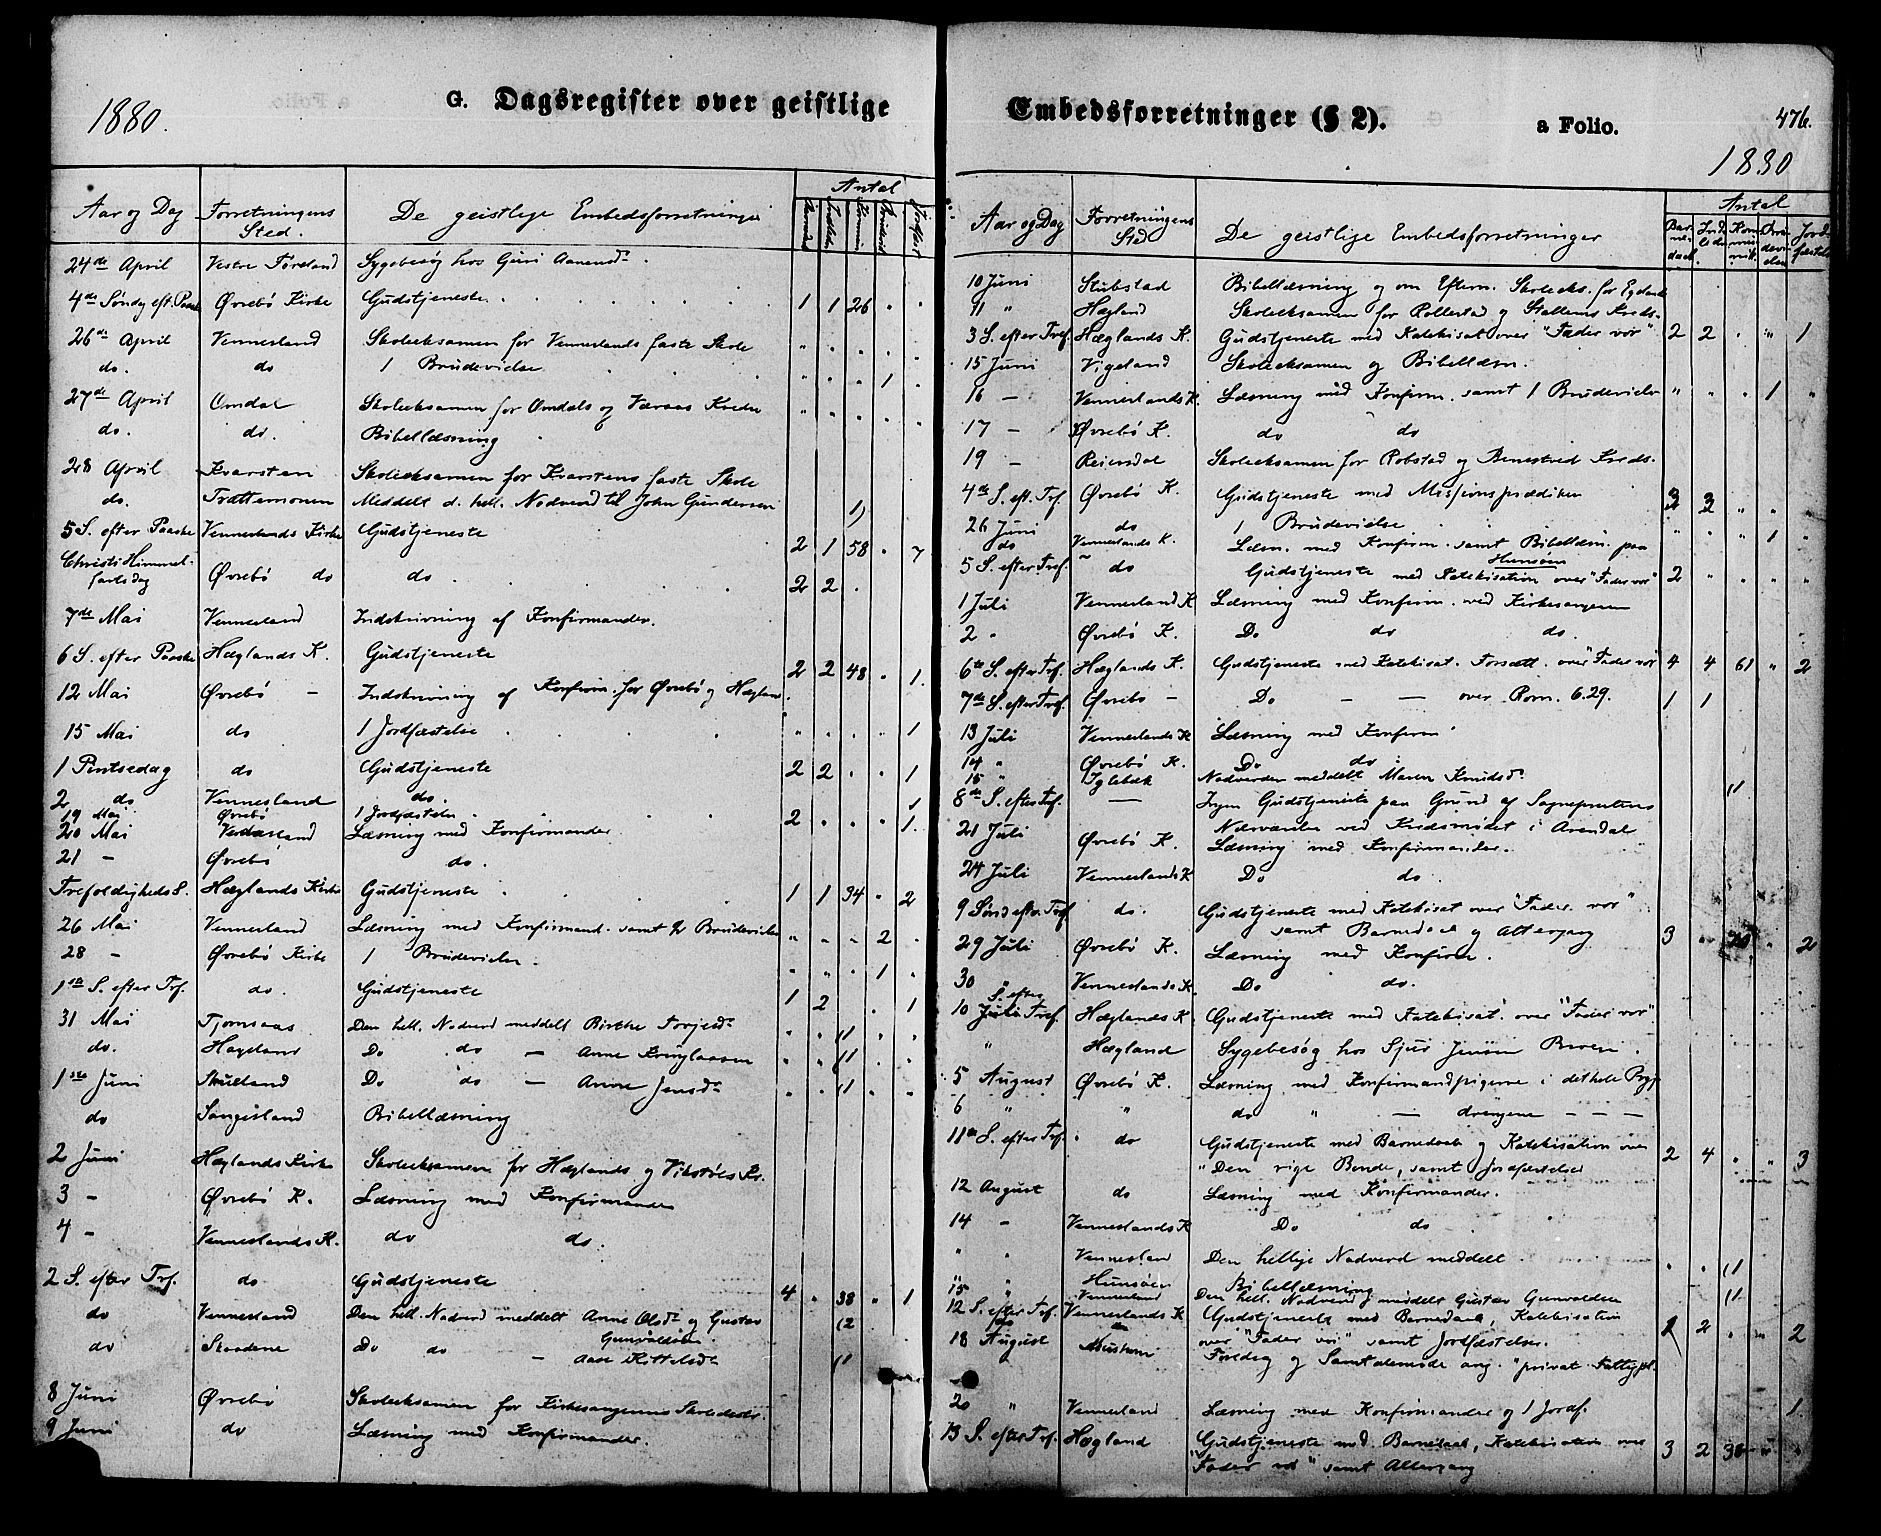 1880.
G. Dagsregister over geistlige
Aar og Dag Forretningens Sted. De geistlige Embedsforretninger Antal
24de April Vestre Sygebesøg hos Guri
4de Søndg eft. Paaske Øvrebø Kirke Gudstjeneste. 1 1 26 " "
26de April Vennesland Skoleeksamen for Venneslands faste Skole " " " " "
do. do 1 Brudevielse " " " 1 "
27de April Omdal Skoleeksamen for Omdals og Kredse " " " " "
do. do. Bibellæsning
28 April Kvarsten Skoleeksamen for Kvarstens faste Skole
do. Meddelt d. hell. Nadverd til John Gundersen 1)
5 S. efter Paaske Venneslands Kirke Gudstjeneste 2 1 58 " 7
Christi Himmelfartsdag Øvrebø do do. 2 2 "
7de Mai Vennesland Indskrivning af Konfirmander.
6 S. efter Paaske Hæglands K. Gudstjeneste 2 2 48 " 1.
12 Mai Øvrebø – Indskrivning af Konfirm. for Øvrebø og Hægland.
15 Mai do 1 Jordfæstelse " " " " 1
1 Pintsedag do Gudstjeneste 2 2 " " 1
2 do Vennesland do. 1
19 Mai Øvrebø 1 Jordfæstelse 2 " " " 1.
20 Mai Vennesland Læsning med Konfirmander
21 – Øvrebø do.
Trefoldigheds S. Hæglands Kirke Gudstjeneste 1 1 34 " 2
26 Mai Vennesland Læsning med Konfirmand. samt 2 Brudevielser " " " 2 "
28 – Øvrebø Kirke 1 Brudevielse. " " " 1 "
1ste S. efter Tref. do. Gudstjeneste 1 2 " 1
31 Mai Tjomsaas Den hell. Nadverd meddelt Birthe Torjesdr " " 11 " "
do. Hægeland Do do – Anne " " 11 " "
1ste Juni Do do – Anne Jensdr " " 11 " "
do Sangesland Bibellæsning
2 Juni Hæglands Kirke Skoleeksamen for Hæglands og Vikstøls Kr.
3 – Øvrebø K. Læsning med Konfirmander
4 – Venneslands K. do do.
2 S. efter Tref. do Gudstjeneste 4 " 38 " 1
do Vennesland Den hell. Nadverd meddelt Anne Olsdr og Gustav Gunvaldsen. 12
do Do do – Aase Kittelsdr 11
8 Juni Øvrebø Skoleeksamen for Kirkesangerens
9 Juni do Læsning med Konfirmander.
Embedsforretninger (§ 2).
a Folio.
476.
1880
Aar og Dag Forretningens Sted De geistlige Embedsforretninger Antal
10 Juni Stubstad Bibellæsning og om Eftern. Skoleeks. for
11 " Hægland Skoleeksamen for Rollestad og Kreds.
3 S. efter Tref. Hæglands K. Gudstjeneste med Katekisat over "Fader vor" 2 2 " " 1
15 Juni Vigeland Skoleeksamen og Bibellæsn.
16 – Venneslands K. Læsning med Konfirm. samt 1 Brudevielse " " " 1 "
17 – Øvrebø K. do do
19 – Reiersdal Skoleeksamen for Robstad og Benestved Kreds.
4de S. eft. Tref. Øvrebø K. Gudstjeneste med Missionsprædiken 3 2 " " "
26 Juni do 1 Brudevielse " " " 1 "
do Venneslands K. Læsn. med Konfirm. samt Bibellæsn. paa Hunsøen
5 S. efter Tref. do Gudstjeneste med Katekisation over "Fader vor" 2 " " " "
1 Juli Vennesland K Læsning med Konfirm. ved Kirkesangeren
2 " Øvrebø K. Do do do.
6te S. efter Tref. Hæglands K. Gudstjeneste med Katekisat. Forsætt. over "Fader vor" 4 4 61 " 2
7de S. efter Tref. Øvrebø – Do – – over Rom. 6.29. 1 1
13 Juli Venneslands K Læsning med Konfirm
14 " Øvrebø K. Do do.
15 " Iglebæk Nadverden meddelt Maren Knudsdr 11
8de S. efter Tref. – Ingen Gudstjeneste paa Grund af Sognepræstens Nærværelse ved Kredsmødet i Arendal
21 Juli Øvrebø K. Læsning med Konfirmander.
24 Juli Venneslands K Do do.
9 Sønd efter Tref do. Gudstjeneste med Katekisat over "Fader vor" samt Barnedaab og Altergang 3 " " 2
29 Juli Øvrebø K. Læsning med Konfirm.
30 " Venneslands K. Do do.
10 S. efter Tref. Hæglands K Gudstjeneste med Katekisat. over "Fader vor"
" Hægland Sygebesøg hos Sjur Jensen
5 August Øvrebø K. Læsning med Konfirmandpigerne i det hele
6 " " do " – drengene – – –
11te S. efter Tref. do Gudstjeneste med Barnedaab og Katekisation over "Den rige Bonde, samt Jordfæstelse 2 4 " " 3
12 August do Læsning med Konfirmander.
14 – Venneslands K Do do
" " Vennesland Den hellige Nadverd meddelt " " 11
" " Hunsøen Bibellæsning
15 " Vennesland Den hell. Nadverd meddelt Gustav Gunvaldsen 11
12 S. efter Tref. Venneslands K Gudstjeneste med Barnedaab, Katekisation over "Fader vor" samt Jordfæstelse. 2 2 " " 2
18 August Foredrag og Samtalemøde ang. "privat Fattigpl.
20 " Vennesland Læsning med Konfirmander og 1 Jordf. 1.
13 S. efter Tref. Hægland Gudstjeneste med Barnedaab, Katekisation over "Fader vor" samt Altergang 3 2 38 " "